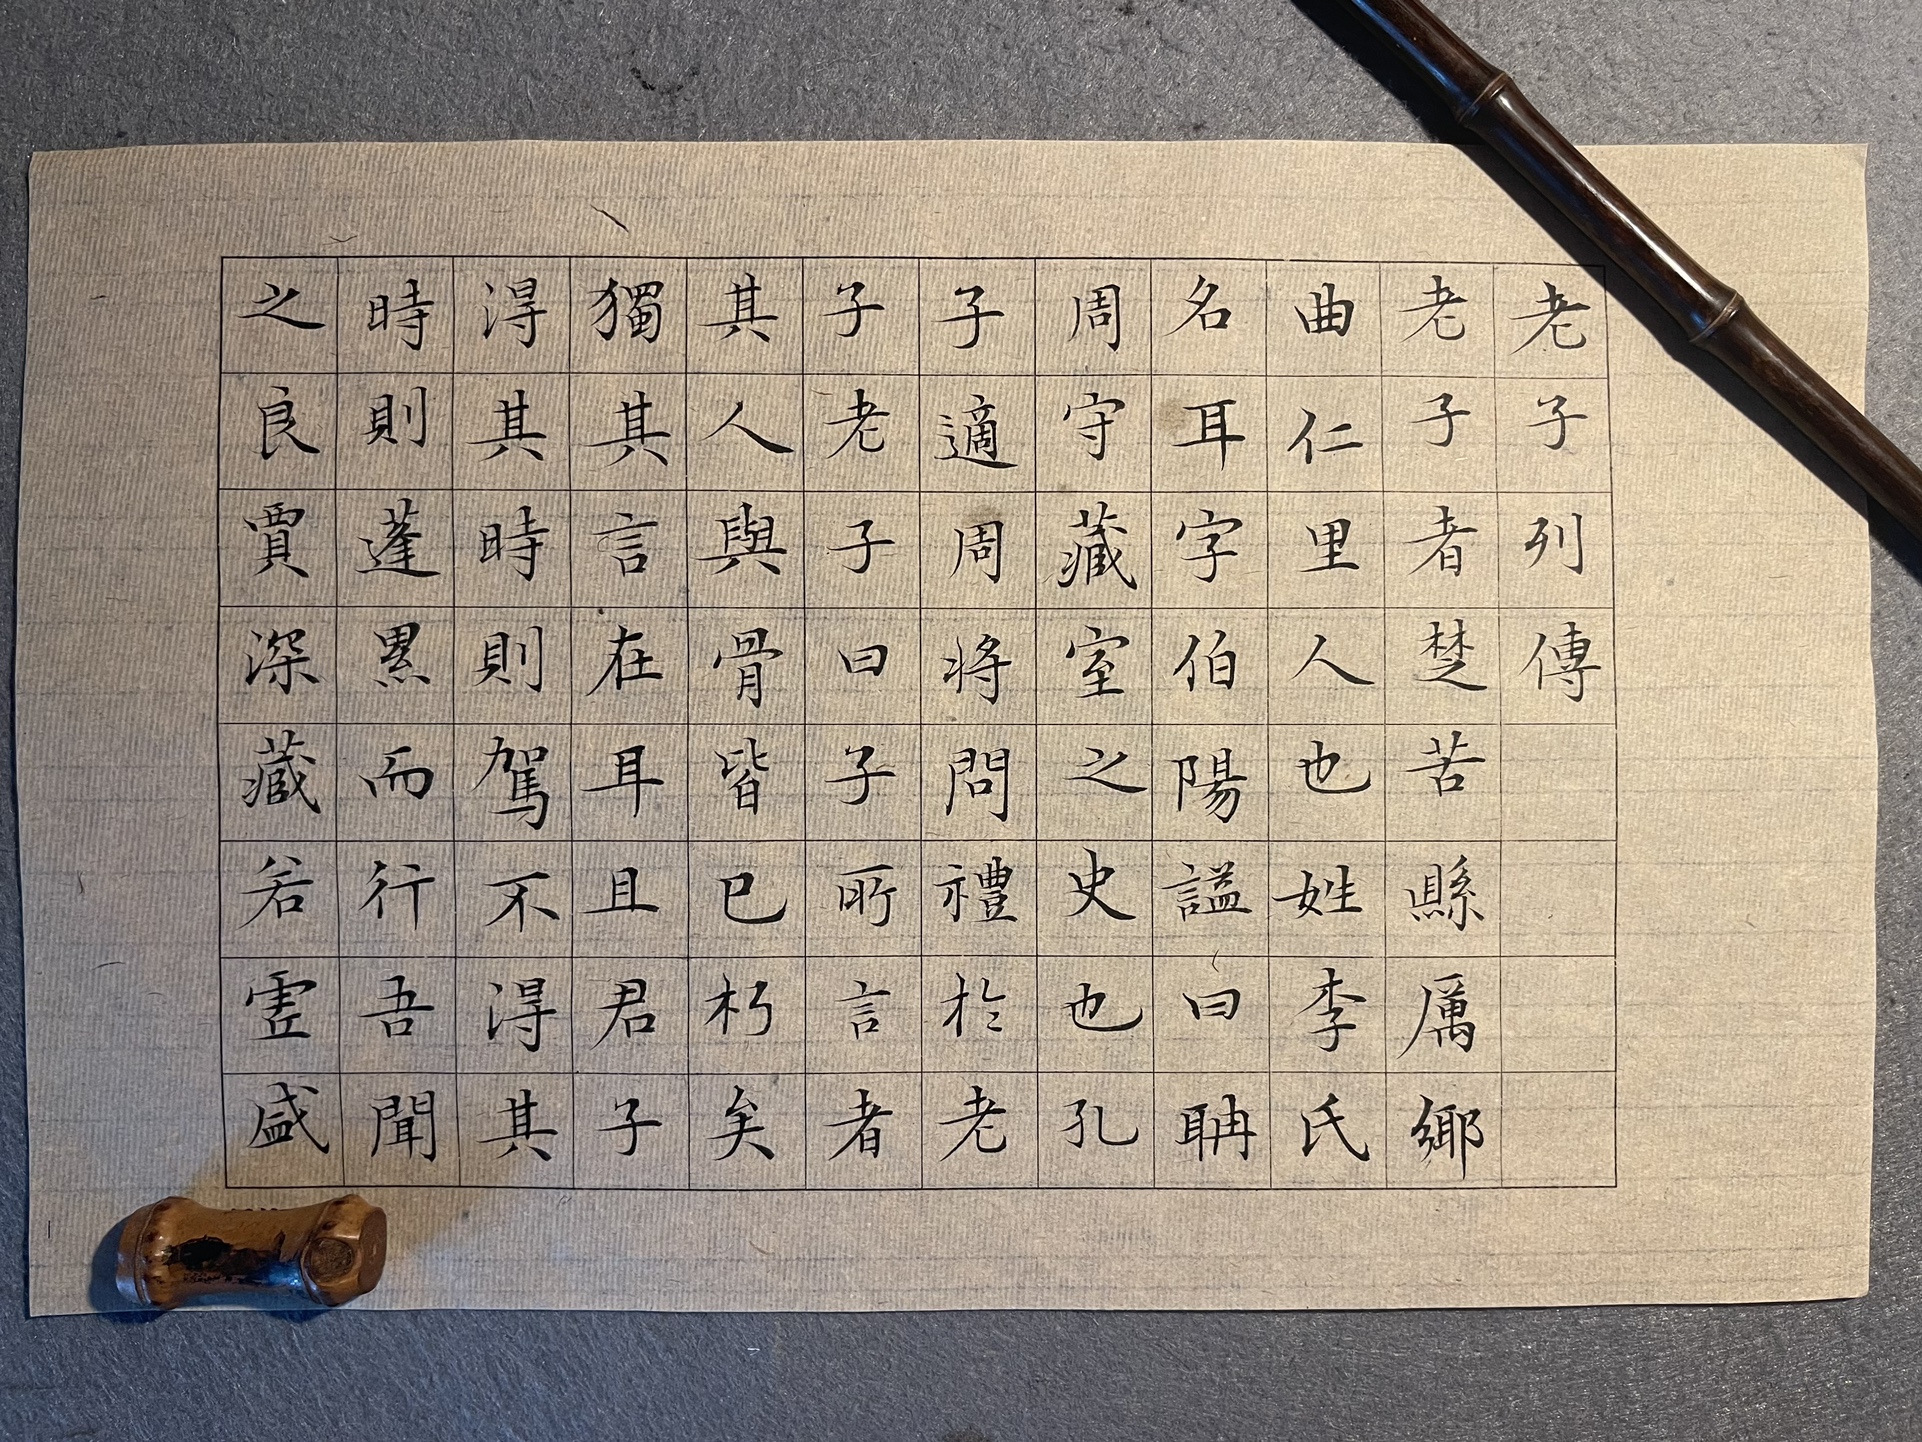 老子列傳
老子者楚苦縣厲鄉
曲仁里人也姓李氏
名耳字伯陽謚曰聃
周守藏室之史也孔
子適周將問禮於老
子老子曰子所言者
其人與骨皆已朽矣
獨其言在耳且君子
得其時則駕不得其
時則蓬累而行吾聞
之良賈深藏若虛盛